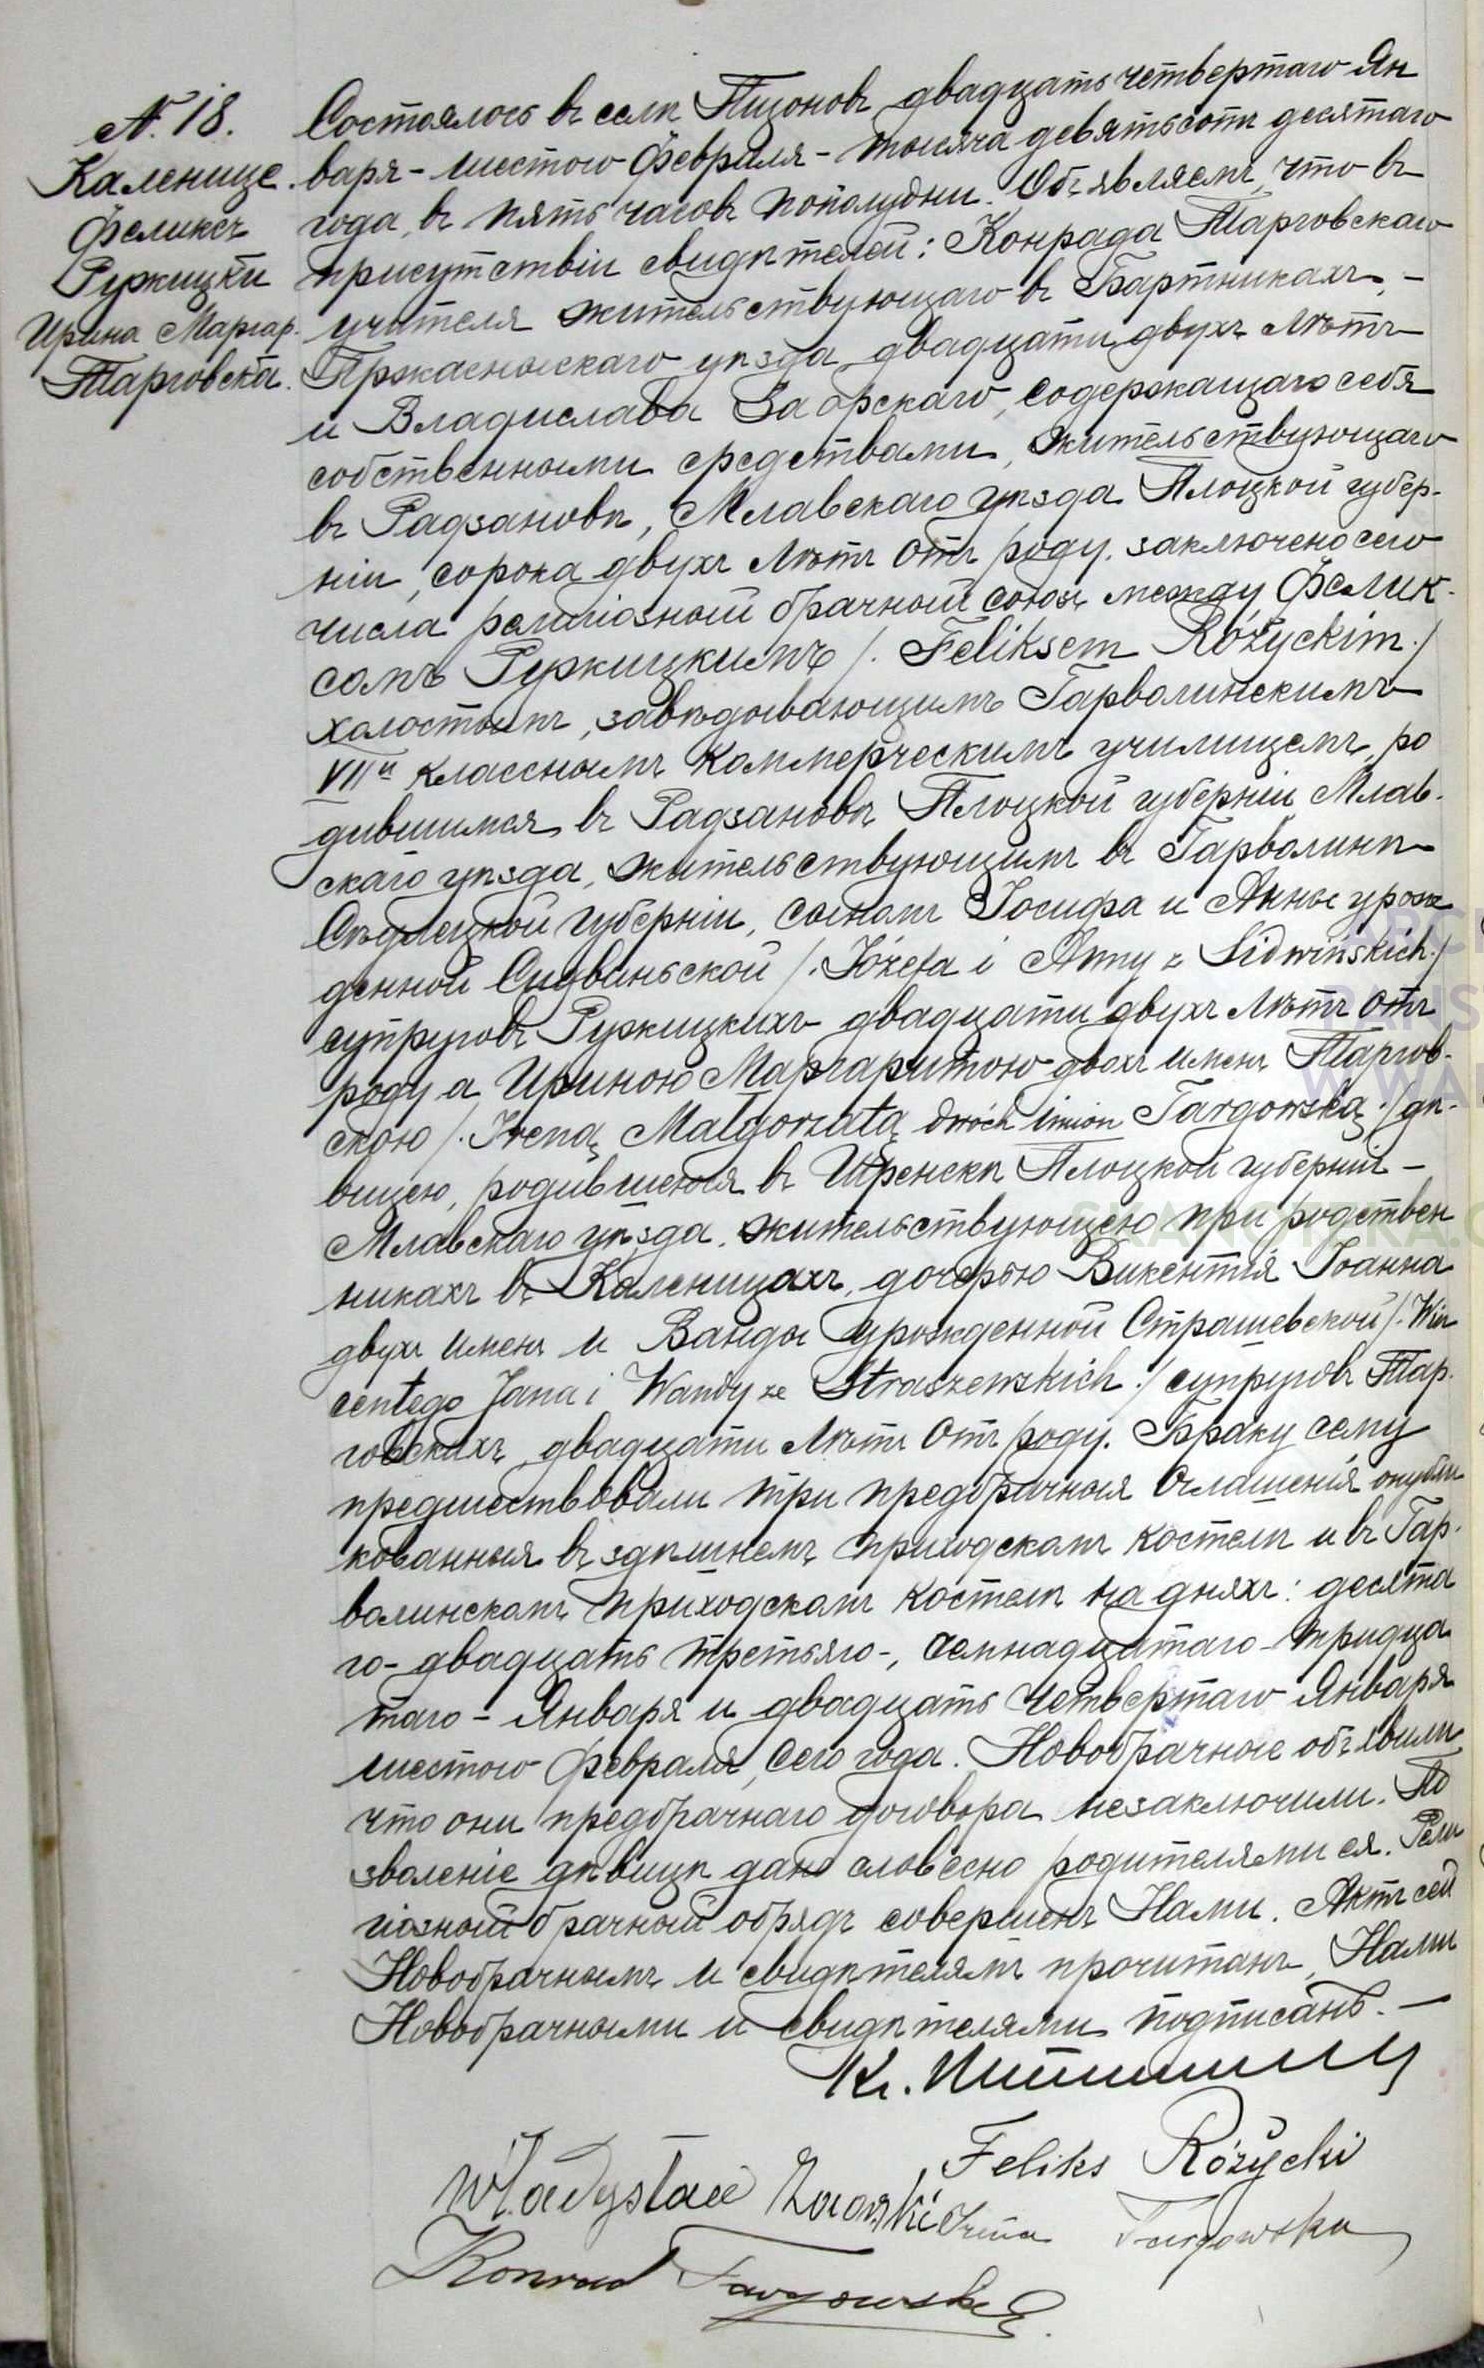 № 18.
Каленице.
Феликсъ
Ружицки
Ирина Маргар.
Тарговска.
Состоялось въ селѣ Пщоновъ двадцать четвертаго Ян
варя - шестого Февраля - тысяча девятьсотъ десятаго
года, въ пять часовъ пополудни. Объявляемъ, что въ
присутствіи свидѣтелей: Конрада Тарговскаго
учителя жительствующаго въ Бартникахъ, -
Пржаснысскаго уѣзда двадцати двухъ лѣтъ
и Владислава Заорскаго, содержащаго себя
собственными средствами, жительствующаго
въ Радзановѣ, Млавскаго уѣзда Плоцкой губер-
ніи, сорока двухъ лѣтъ отъ роду, заключено сего
числа религіозный брачный союзъ между Фелик-
сомъ Ружицкимъ /. Feliksem Różyckim ./
холостымъ, завѣдывающимъ Гарволинскимъ
VIIи класснымъ Коммерческимъ училищемъ, ро
дившимся въ Радзановѣ Плоцкой губерніи Млав-
скаго уѣзда, жительствующимъ въ Гарволинѣ
Сѣдлецкой губерніи, сыномъ Іосифа и Анны урож
денной Сидвиньской /. Józefa i Anny z Sidwińskich ./
супруговъ Ружицкихъ двадцати двухъ лѣтъ отъ
роду а Ириною Маргаритою двохъ именъ Таргов-
скою /. Ireną Małgorzatą dwóch imion Targowską ./ дѣ-
вицею, родившеюся въ Шренскѣ Плоцкой губерніи -
Млавскаго уѣзда, жительствующею при родствен
никахъ въ Каленицахъ, дочерью Викентія Іоанна
двухъ именъ и Ванды урожденной Страшевской /. Win
centego Jana i Wandy ze Straszewskich ./ супруговъ Тар-
говскихъ, двадцати лѣтъ отъ роду. Браку сему
предшествовали три предбрачныя оглашенія опубли
кованныя въ здѣшнемъ приходскомъ костелѣ и въ Гар-
волинскомъ приходскомъ костелѣ на дняхъ: десята
го - двадцать третьяго -, семнадцатаго - тридца
таго - Января и двадцать четвертаго Января
шестого Февраля, сего года. Новобрачные объявили
что они предбрачнаго договора незаключили. По
зволеніе дѣвицѣ дано словесно родителями ея. Рели
гіозный брачный обрядъ совершенъ Нами. Актъ сей
Новобрачнымъ и свидѣтелямъ прочитанъ, Нами
Новобрачными и свидѣтелями подписанъ. -
Кс.
Feliks Różycki
Władysław Zaorski Irena Targowska
Konrad Targowski